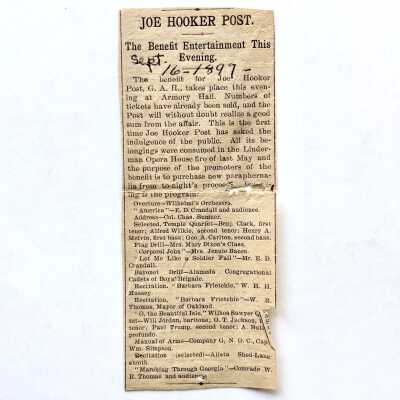 JOE HOOKER POST.
The Benefit Entertainment This
Evening.
Sept. 16-1897-
The benefit for Joe Hooker
Post, G. A. R., takes place this even-
ing at Armory Hall. Numbers of
tickets have already been sold, and the
Post will without doubt realize a good
sum from the affair. This is the first
time Joe Hooker Post has asked the
indulgence of the public. All its be-
longings were consumed in the Linder-
man Opera House fire of last May and
the purpose of the promoters of the
benefit is to purchase new parapherna-
lia from to-night's
ing is the program:
Overture—Wilhelmi's Orchestra.
"America"—E. D. Crandall and audience.
Address—Col. Chas. Sumner.
Selected, Temple Quartet—Benj. Clark, first
tenor; Alfred Wilkie, second tenor; Henry A.
Melvin, first bass; Geo. A. Carlton, second bass.
Flag Drill—Mrs. Mary Dixon's Class.
"Corporal John"—Mrs. Jennie Bacon.
"Let Me Like a Soldier Fall"—Mr. E. D.
Crandall.
Bayonet Drill—Alameda Congregational
Cadets of Boys' Brigade.
Recitation, "Barbara Frietchie," W. H. H.
Hussey.
Recitation, "Barbara Frietchie"—W. R.
Thomas, Mayor of Oakland.
"O, the Beautiful Isle," Wilson Sawyer
—Will Jordan, baritone; O. T. Jackson,
tenor; Paul Tromp, second tenor; A.
profundo.
Manual of Arms—Company G, N. G. C., Capt.
Wm. Simpson.
Recitation (selected)—Alieta
"Marching Through Georgia"—Comrade W.
R. Thomas and audience